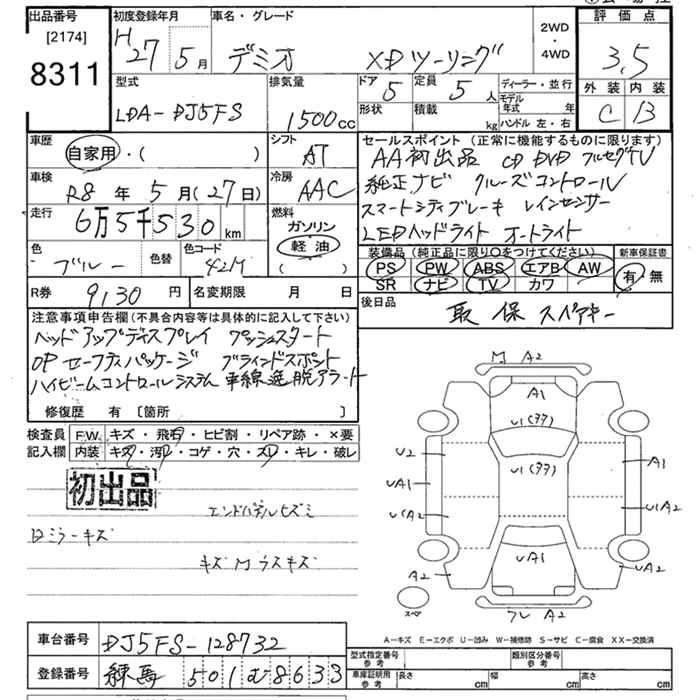 出品番号
[2174]
8311
初度登録年月
H27年5月
車名・グレード
デミオ XDツーリング
2WD
・
4WD
評価点
3.5
外装 内装
C B
型式
LDA-DJ5FS
排気量
1500cc
ドア
5
定員
5人
形状
積載
kg
ディーラー・並行
モデル年式 年
ハンドル 左・右
車歴
自家用・( )
シフト
AT
車検
R8年5月(27日)
冷房
AAC
走行
6万5千530km
燃料
ガソリン
軽油
( )
色
ブルー
色替
色コード
42M
R券
9130円
名変期限 月 日
セールスポイント(正常に機能するものに限ります)
AA初出品 CD DVD フルセグTV
純正ナビ クルーズコントロール
スマートシティブレーキ レインセンサー
LEDヘッドライト オートライト
装備品(純正品に限り○をつけてください)
PS PW ABS エアB AW
SR ナビ TV カワ
新車保証書
有 無
後日品
取 保 スペアキー
注意事項申告欄(不具合内容等は具体的に記入して下さい)
ヘッドアップディスプレイ プッシュスタート
OP セーフティパッケージ ブラインドスポット
ハイビームコントロールシステム 車線逸脱アラート
修復歴 有 [箇所 ]
検査員
記入欄
F.W. キズ・飛石・ヒビ割・リペア跡・×要
内装 キズ・汚レ・コゲ・穴・スレ・キレ・破レ
初出品
エンドパネルヒズミ
ロミラーキズ
キズM ラスキズ
M A2
A1
U1(タタ)
U1(タタ)
U2
UA1
U(A2
A2
A1
U1A2
UA2
UA1
フレ A2
スペア
A-キズ E-エクボ U-凹み W-補修跡 S-サビ C-腐食 XX-交換済
車台番号
DJ5FS-128732
登録番号
練馬 501む8633
型式指定番号
参考
類別区分番号
参考
車庫証明用
参考
長さ cm
幅 cm
高さ cm